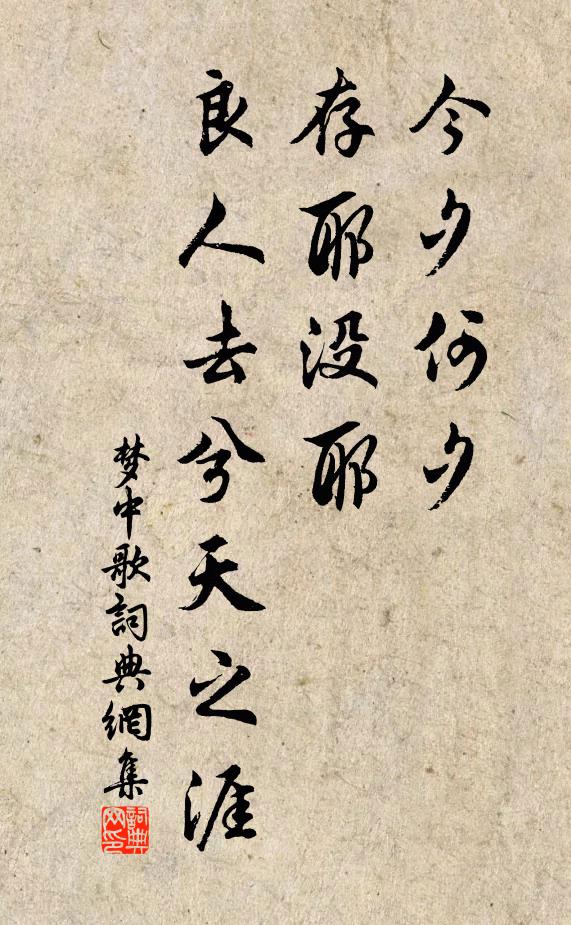 今夕何夕
存耶没耶
良人去兮天之涯
梦中歌詞典網集
詞典网印